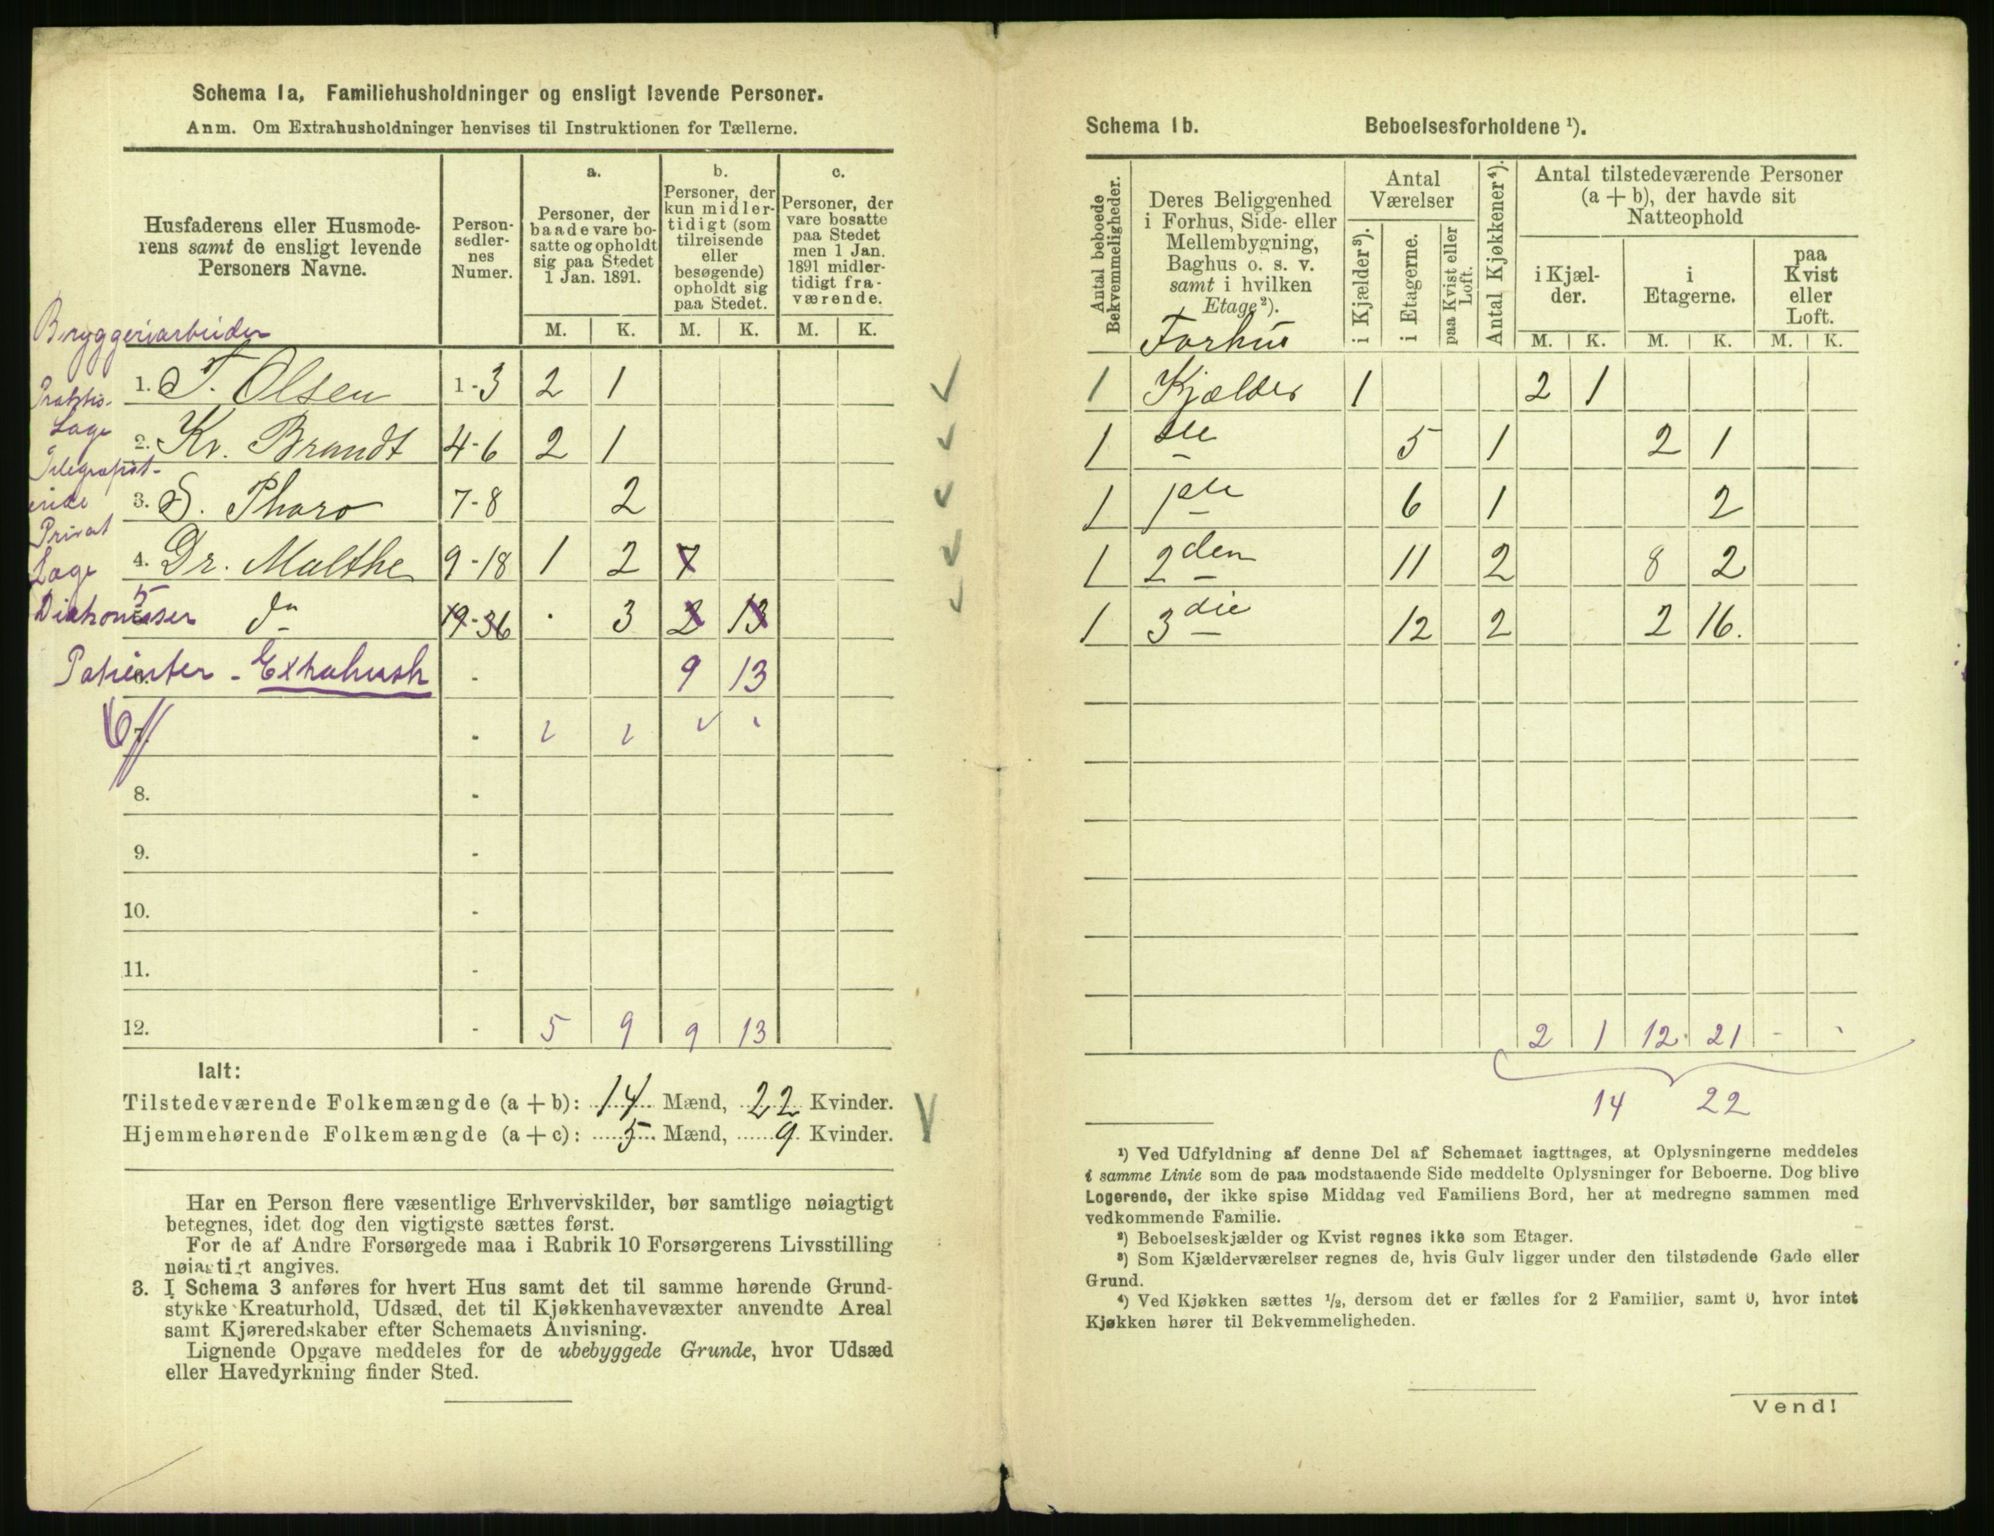 Schema 1a, Familiehusholdninger og ensligt levende Personer.
Anm. Om Extrahusholdninger henvises til Instruktionen for Tællerne.
Husfaderens eller Husmode-
rens samt de ensligt levende
Personers Navne.
Person-
sedler-
nes
Numer.
a.
Personer, der
baade vare bo-
satte og opholdt
sig paa Stedet
1 Jan. 1891.
b.
Personer, der
kun midler-
tidigt (som
tilreisende
eller
besøgende)
opholdt sig
paa Stedet.
c.
Personer, der
vare bosatte
paa Stedet
men 1 Jan.
1891 midler-
tidigt fra-
værende.
M. K. M. K. M. K.
Bryggeriarbeider
1. T. Olsen 1-3 2 1
Praktis.
Læge
2. Kr. Brandt 4-6 2 1
Telegrafist-
3. S. Pharo 7-8 2
Privat
Læge
4. Dr. Malthe 9-18 1 2 7
Diakonisser 5 do 19-36 · 3 2 13
Patienter - Extrahush - 9 13
7. -
8. -
9. -
10. -
11. -
12. - 5 9 9 13
Ialt:
Tilstedeværende Folkemængde (a + b): 14 Mænd, 22 Kvinder.
Hjemmehørende Folkemængde (a + c): 5 Mænd, 9 Kvinder.
Har en Person flere væsentlige Erhvervskilder, bør samtlige nøiagtigt
betegnes, idet dog den vigtigste sættes først.
For de af Andre Forsørgede maa i Rubrik 10 Forsørgerens Livsstilling
nøiagtigt angives.
3. I Schema 3 anføres for hvert Hus samt det til samme hørende Grund-
stykke Kreaturhold, Udsæd, det til Kjøkkenhavevæxter anvendte Areal
samt Kjøreredskaber efter Schemaets Anvisning.
Lignende Opgave meddeles for de ubebyggede Grunde, hvor Udsæd
eller Havedyrkning finder Sted.
Schema 1b. Beboelsesforholdene ¹).
Antal beboede
Bekvemmeligheder.
Deres Beliggenhed
i Forhus, Side- eller
Mellembygning,
Baghus o. s. v.
samt i hvilken
Etage²).
Forhus
Antal
Værelser
i Kjælder³).
i Etagerne.
paa Kvist eller
Loft.
Antal Kjøkkener⁴).
Antal tilstedeværende Personer
(a + b), der havde sit
Natteophold
i Kjæl-
der.
i
Etagerne.
paa
Kvist
eller
Loft.
M. K. M. K. M. K.
1 Kjælder 1 2 1
1 Ste 5 1 2 1
1 1ste 6 1 2
1 2den 11 2 8 2
1 3die 12 2 2 16.
2 1 12 21 - -
14 22
¹) Ved Udfyldning af denne Del af Schemaet iagttages, at Oplysningerne meddeles
i samme Linie som de paa modstaaende Side meddelte Oplysninger for Beboerne. Dog blive
Logerende, der ikke spise Middag ved Familiens Bord, her at medregne sammen med
vedkommende Familie.
²) Beboelseskjælder og Kvist regnes ikke som Etager.
³) Som Kjælderværelser regnes de, hvis Gulv ligger under den tilstødende Gade eller
Grund.
⁴) Ved Kjøkken sættes ½, dersom det er fælles for 2 Familier, samt 0, hvor intet
Kjøkken hører til Bekvemmeligheden.
Vend!